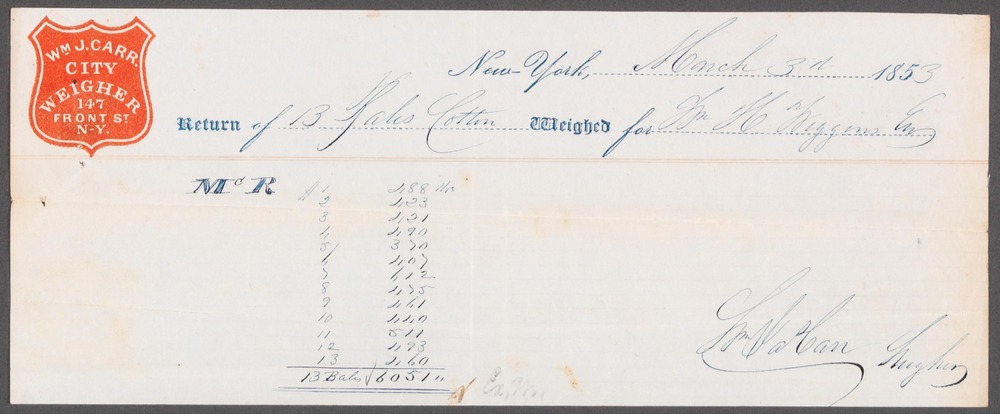 WM J. CARR.
CITY
WEIGHER
147
FRONT ST
N-Y.
New-York, March 31 1853
Return of 13 Bales Cotton Weighed for Wm H Wiggins Esq
Mc R
# 1 488 lbs
2 423
3 421
4 490
5 370
6 407
7 612
8 475
9 461
10 440
11 511
12 493
13 460
13 Bales 6051 "
Wm J a Carr Weigher